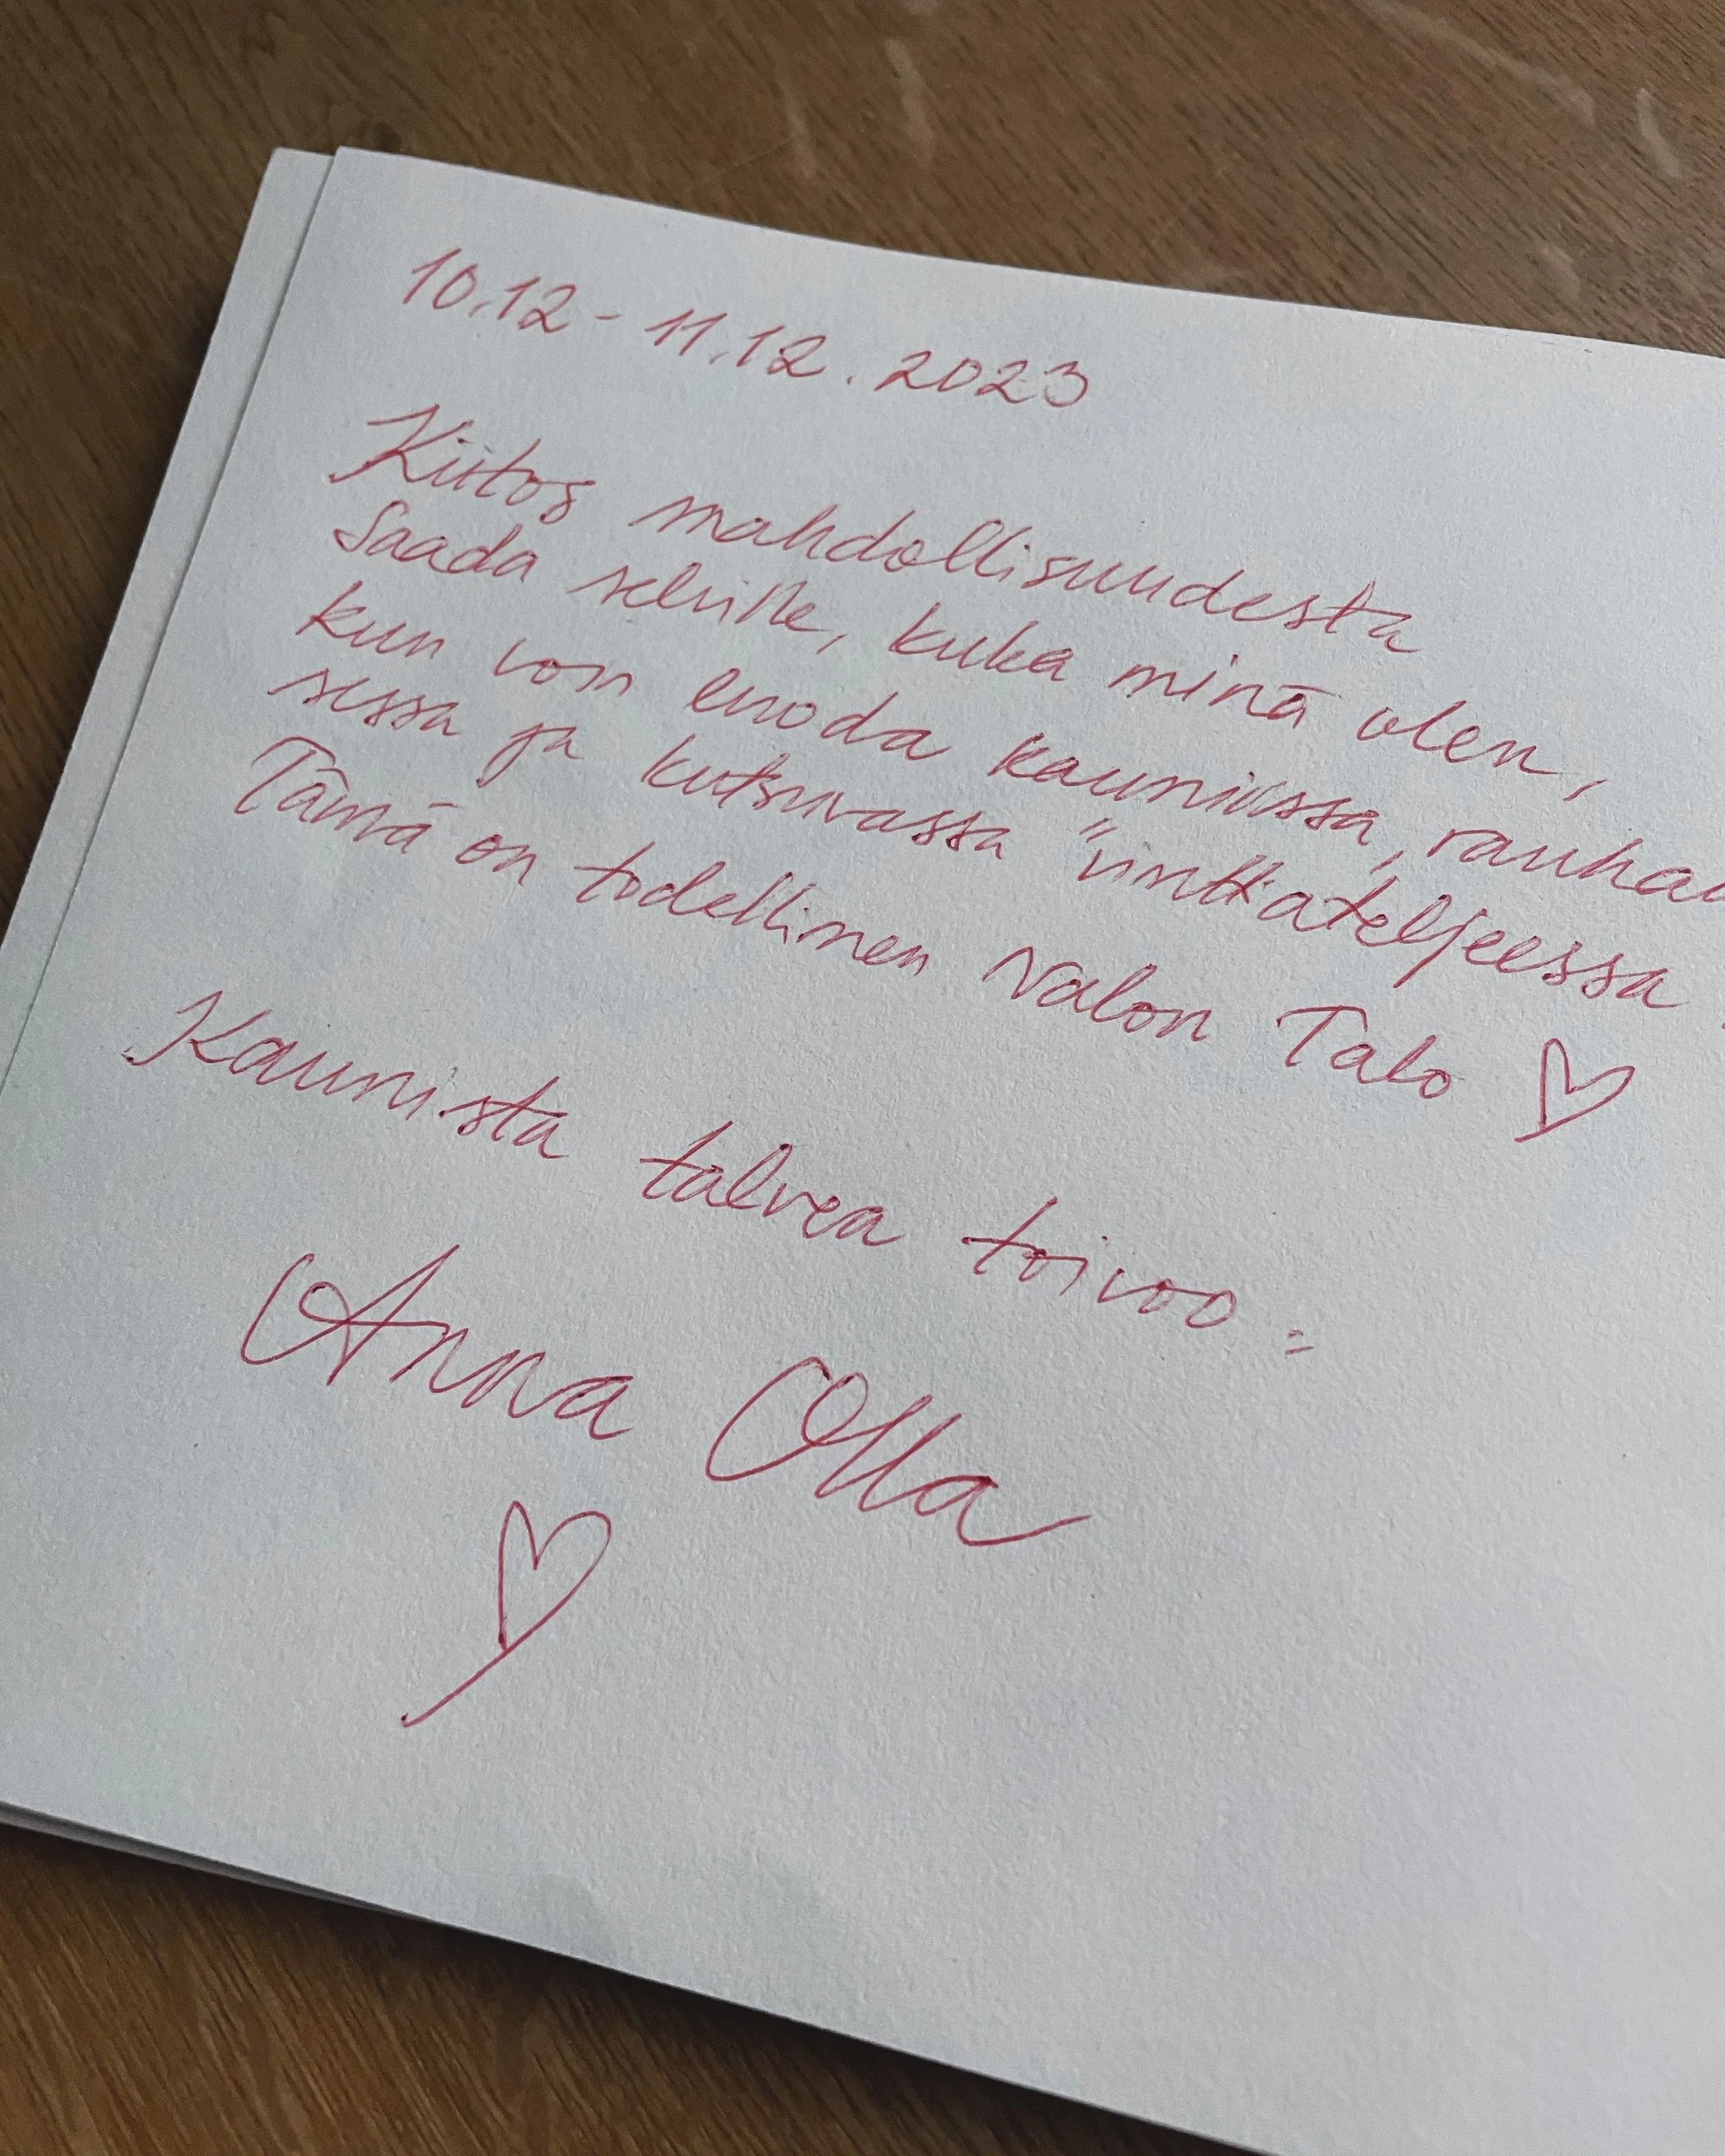 10.12 - 11.12.2023
Kiitos mahdollisuudesta
saada selville, kuka minä olen,
kun voin luoda kauniissa, rauhai
sessa ja kutsuvassa "vinttiateljeessa
Tämä on todellinen Valon Talo ♡
Kaunista talvea toivoo:
Anna Olla
♡